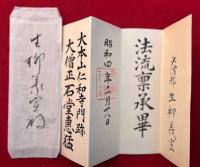 生柳義寛
法流稟承畢
昭和四年 月十八日
大本山仁和寺門跡
大僧正石堂惠猛
生柳義寛殿